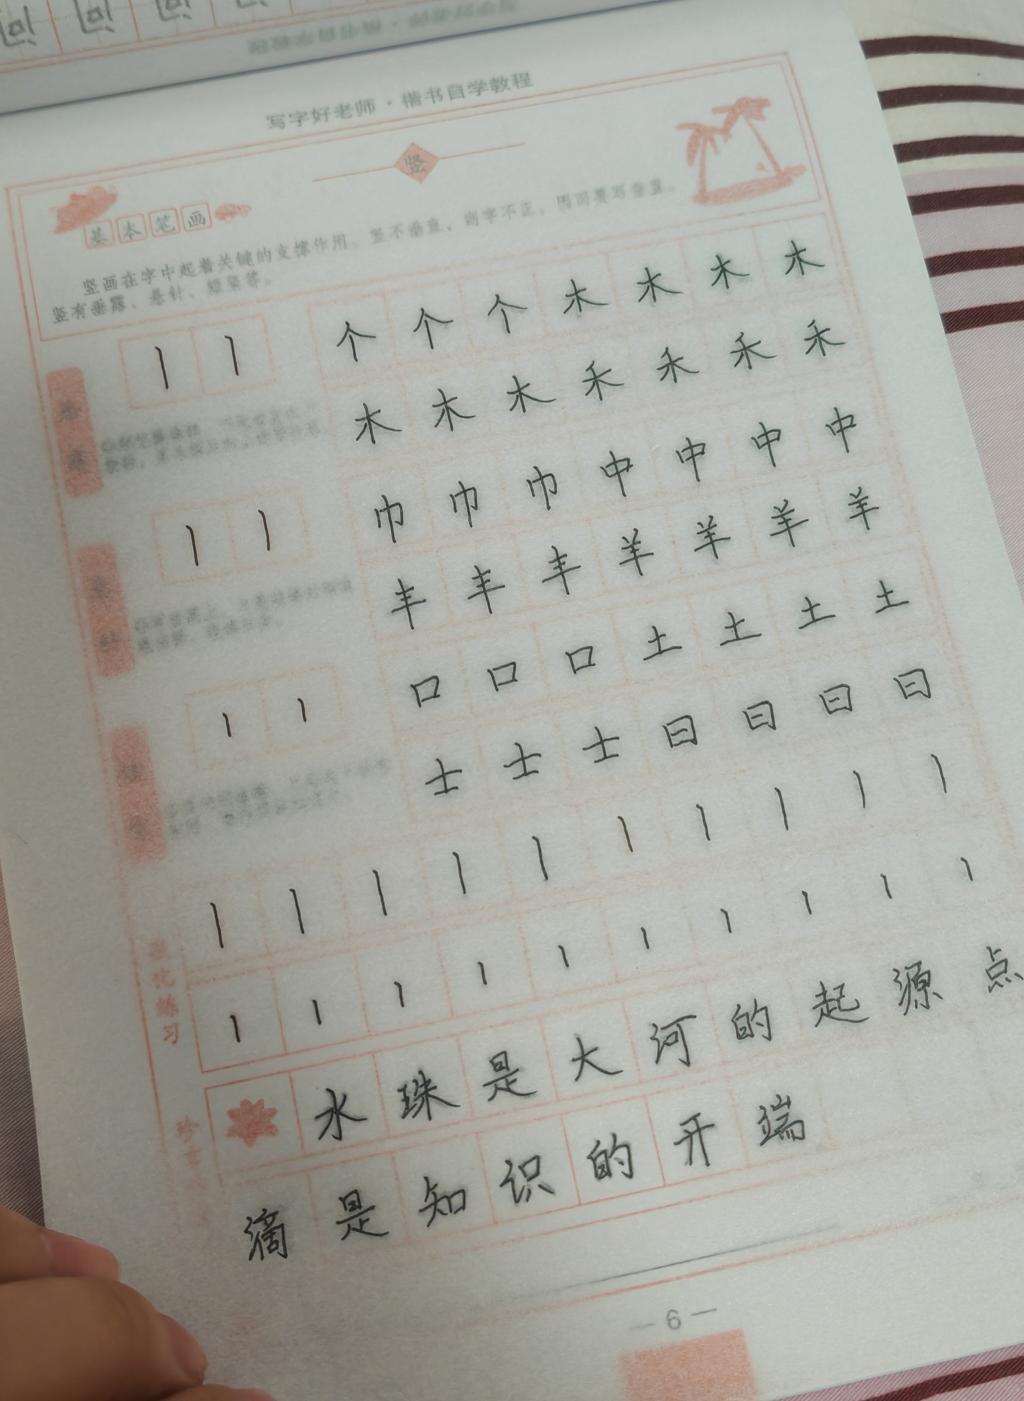 写字好老师·楷书自学教程
竖
基本笔画
竖画在字中起着关键的支撑作用。竖不垂直，则字不正，因而要写垂直。
竖有垂露、悬针、短竖等。
个个个木木木木
木木木禾禾禾禾
巾巾巾中中中中
丰丰丰羊羊羊羊
口口口土土土土
士士士曰曰曰曰
练习
水珠是大河的起源点
滴是知识的开端
— 6 —